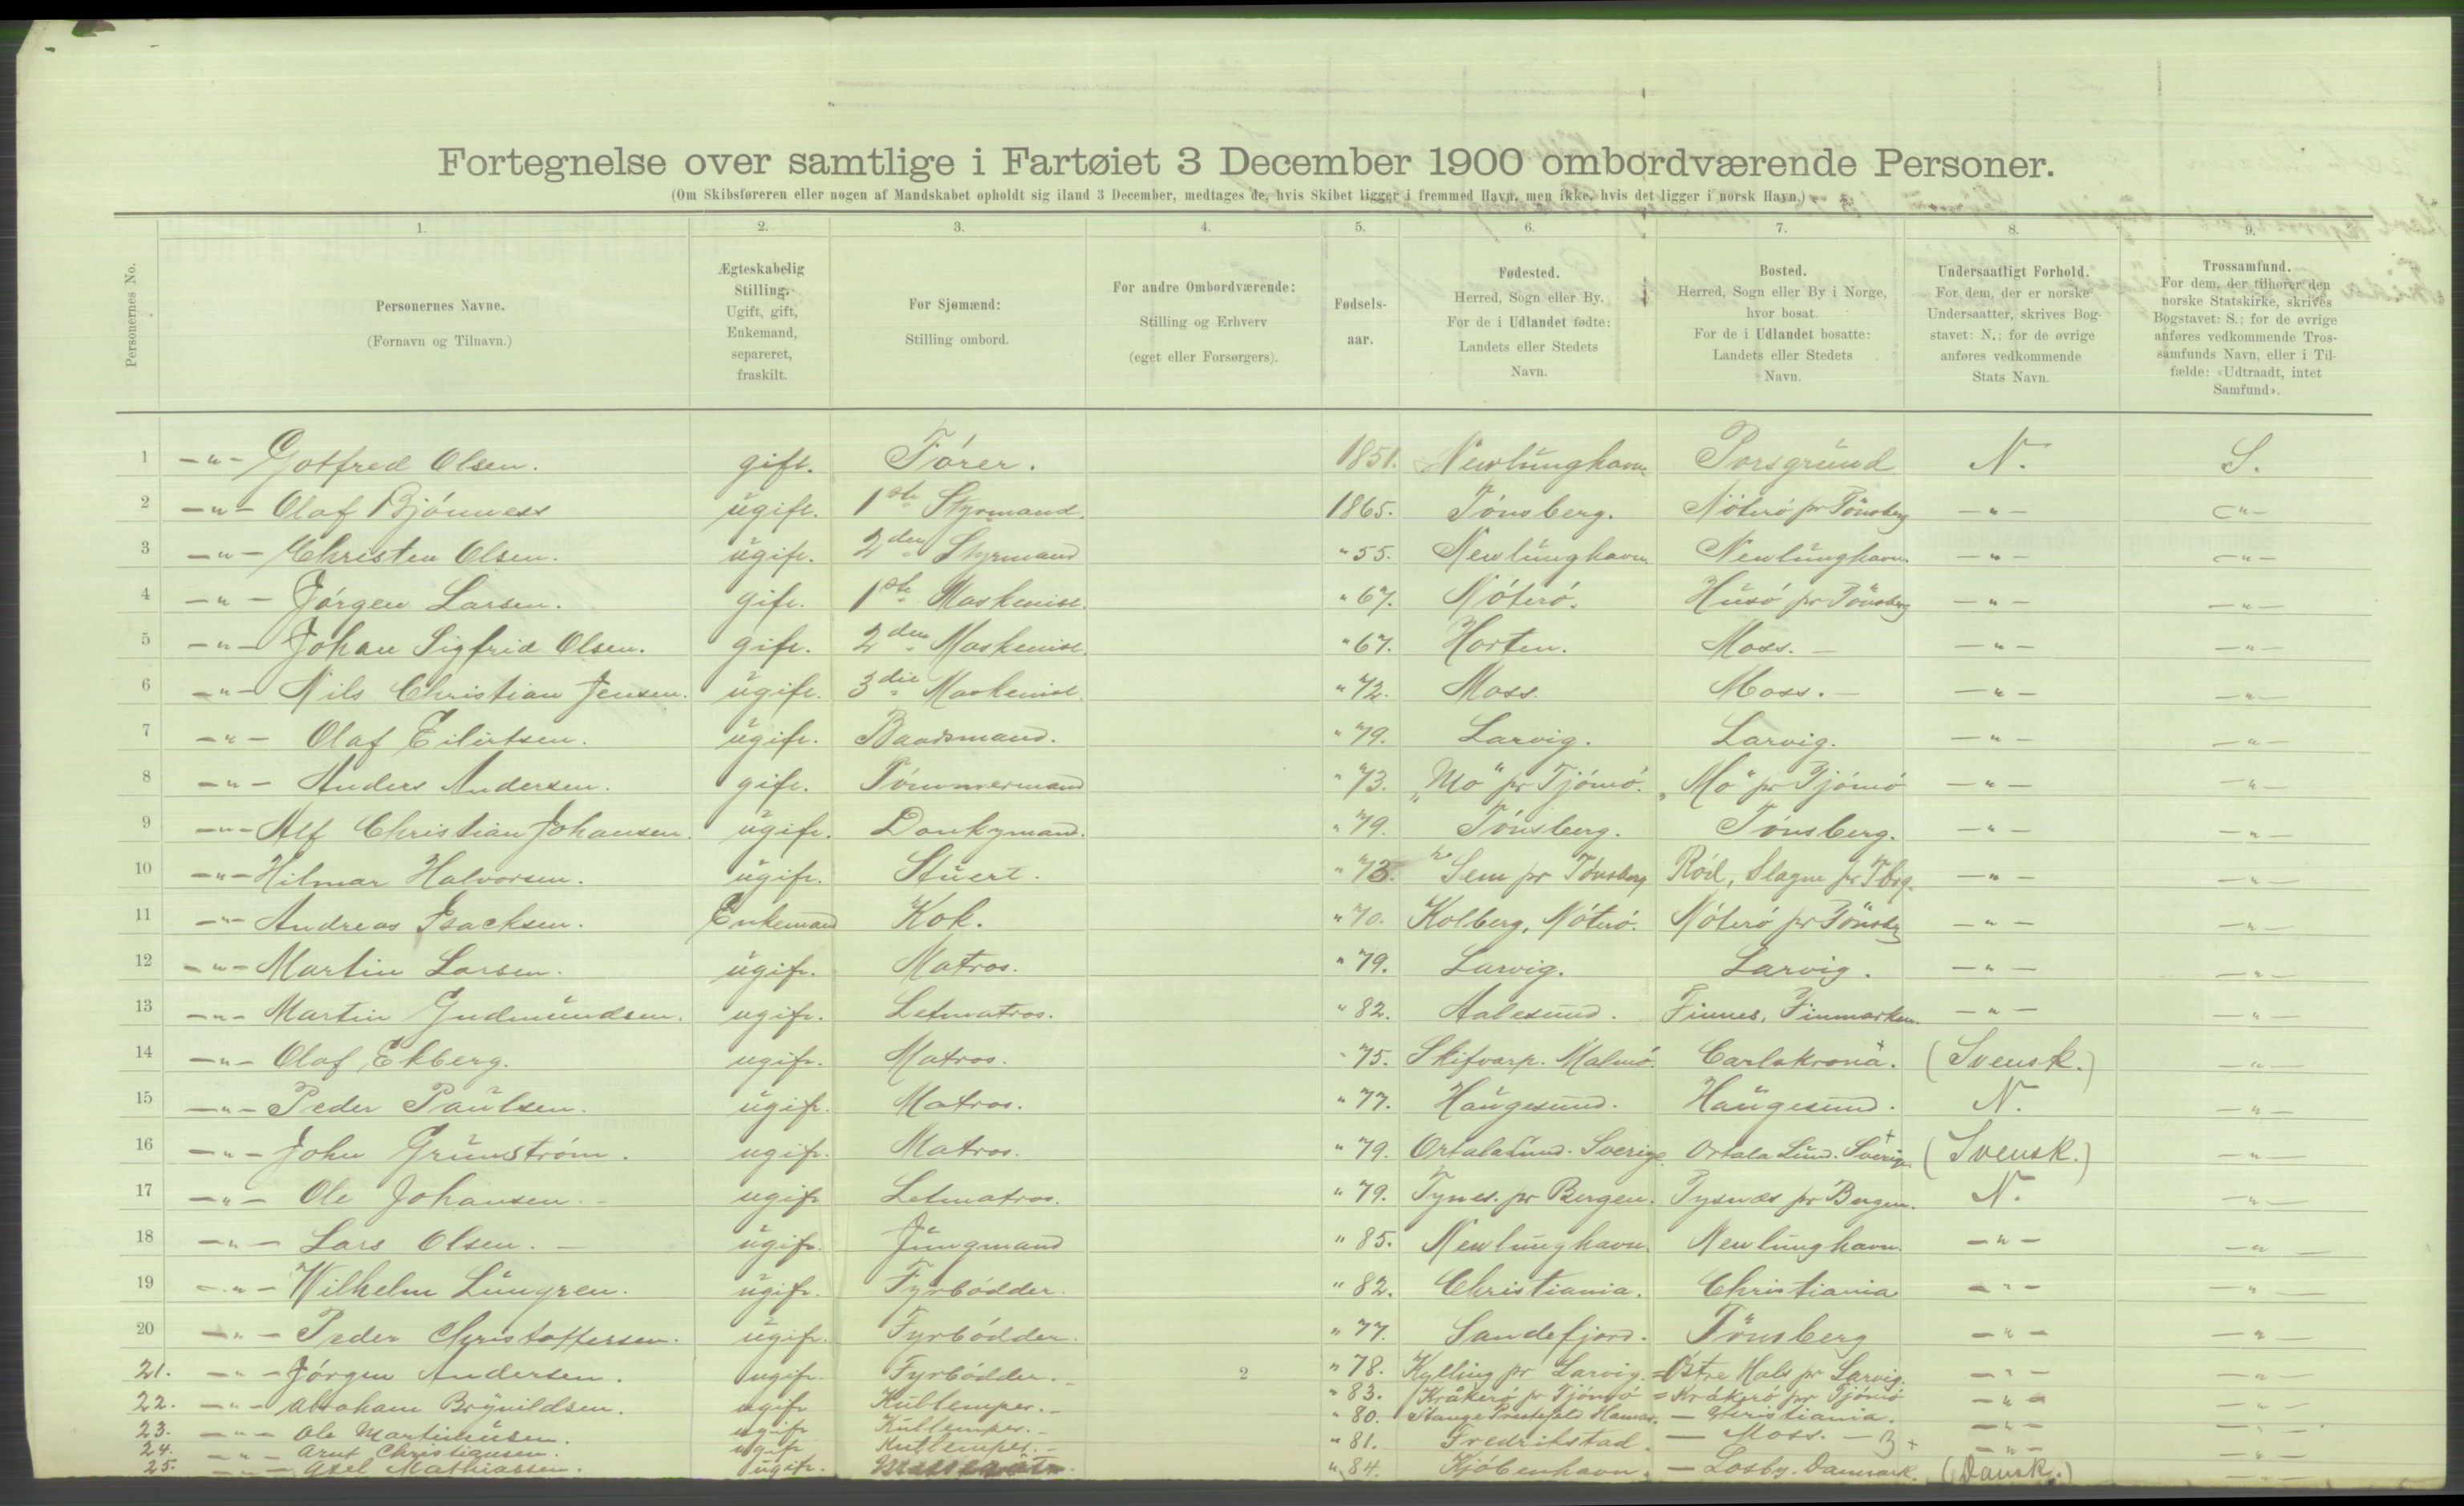 Fortegnelse over samtlige i Fartøiet 3 December 1900 ombordværende Personer.
(Om Skibsføreren eller nogen af Mandskabet opholdt sig iland 3 December, medtages de, hvis Skibet ligger i fremmed Havn, men ikke, hvis det ligger i norsk Havn.)
Personernes No.
1. 2. 3. 4. 5. 6. 7. 8. 9.
Personernes Navne.
(Fornavn og Tilnavn.)
Ægteskabelig
Stilling.
Ugift, gift,
Enkemand,
separeret,
fraskilt.
For Sjømænd:
Stilling ombord.
For andre Ombordværende:
Stilling og Erhverv
(eget eller Forsørgers).
Fødsels-
aar.
Fødested.
Herred, Sogn eller By.
For de i Udlandet fødte:
Landets eller Stedets
Navn.
Bosted.
Herred, Sogn eller By i Norge,
hvor bosat.
For de i Udlandet bosatte:
Landets eller Stedets
Navn.
Undersaatligt Forhold.
For dem, der er norske
Undersaatter, skrives Bog-
stavet: N.; for de øvrige
anføres vedkommende
Stats Navn.
Trossamfund.
For dem, der tilhører den
norske Statskirke, skrives
Bogstavet: S.; for de øvrige
anføres vedkommende Tros-
samfunds Navn, eller i Til-
fælde: «Udtraadt, intet
Samfund».
1 -"- Gotfred Olsen. gift. Fører. 1851. Nevlunghavn Porsgrund N. S.
2 -"- Olaf Bjønness ugift. 1ste Styrmand. 1865. Tønsberg. Nøterø pr Tønsberg -"- -"-
3 -"- Christen Olsen. ugift. 2den Styrmand "55. Nevlunghavn Nevlunghavn. -"- -"-
4 -"- Jørgen Larsen. gift. 1ste Maskenist. "67. Nøterø. Husø pr Tønsberg -"- -"-
5 -"- Johan Sigfrid Olsen. gift. 2den Maskenist. "67. Horten. Moss. -"- -"-
6 -"- Nils Christian Jensen. ugift. 3die Maskenist. "72. Moss. Moss. -"- -"-
7 -"- Olaf Eilertsen. ugift. Baadsmand. "79. Larvig. Larvig. -"- -"-
8 -"- Anders Andersen. gift. Tømmermand "73. "Mo" pr Tjømø. "Mo" pr Tjømø -"- -"-
9 -"- Alf Christian Johansen. ugift. Donkymand. "79. Tønsberg. Tønsberg. -"- -"-
10 -"- Hilmar Halvorsen. ugift. Stuert. "73. Sem pr Tønsberg Rød, Slagn pr Tbrg. -"- -"-
11 -"- Andreas Isacksen. Enkemand Kok. "70. Kolberg, Nøterø. Nøterø pr Tønsb -"- -"-
12 -"- Martin Larsen. ugift. Matros. "79. Larvig. Larvig. -"- -"-
13 -"- Martin Gudmundsen. ugift. Letmatros. "82. Aalesund. Finnes, Finmarken. -"- -"-
14 -"- Olaf Ekberg. ugift. Matros. "75. Skifvarp. Malmø. Carlskrona. (Svensk.) -"-
15 -"- Peder Paulsen. ugift. Matros. "77. Haugesund. Haugesund. N. -"-
16 -"- John Grunström. ugift. Matros. "79. Ortalalund. Sverige. Ortala Lund. Sverige. (Svensk.) -"-
17 -"- Ole Johansen. ugift Letmatros. "79. Tynes. pr Bergen. Tysnæs pr Bergen. N. -"-
18 -"- Lars Olsen. ugift. Jungmand "85. Nevlunghavn. Nevlunghavn. -"- -"-
19 -"- Wilhelm Lungren. ugift. Fyrbødder. "82. Christiania. Christiania -"- -"-
20 -"- Peder Christoffersen. ugift. Fyrbødder. "77. Sandefjord. Tønsberg -"- -"-
21. -"- Jørgen Andersen. ugift. Fyrbødder. 2 "78. Kylling pr Larvig. Østre Hals pr Larvig. -"- -"-
22. -"- Abraham Brynildsen. ugift Kullemper. "83. Kråkerø pr Tjømø Kråkerø pr Tjømø -"- -"-
23. -"- Ole Martinusen. ugift Kullemper. "80. Stange Prestefeld Hamar. Christiania. -"- -"-
24. -"- Arnt Christiansen. ugift Kullemper. "81. Fredrikstad. Moss. -"- -"-
25. -"- Axel Mathiassen. ugift. "84. Kjøbenhavn. Losby. Danmark. (Dansk.) -"-